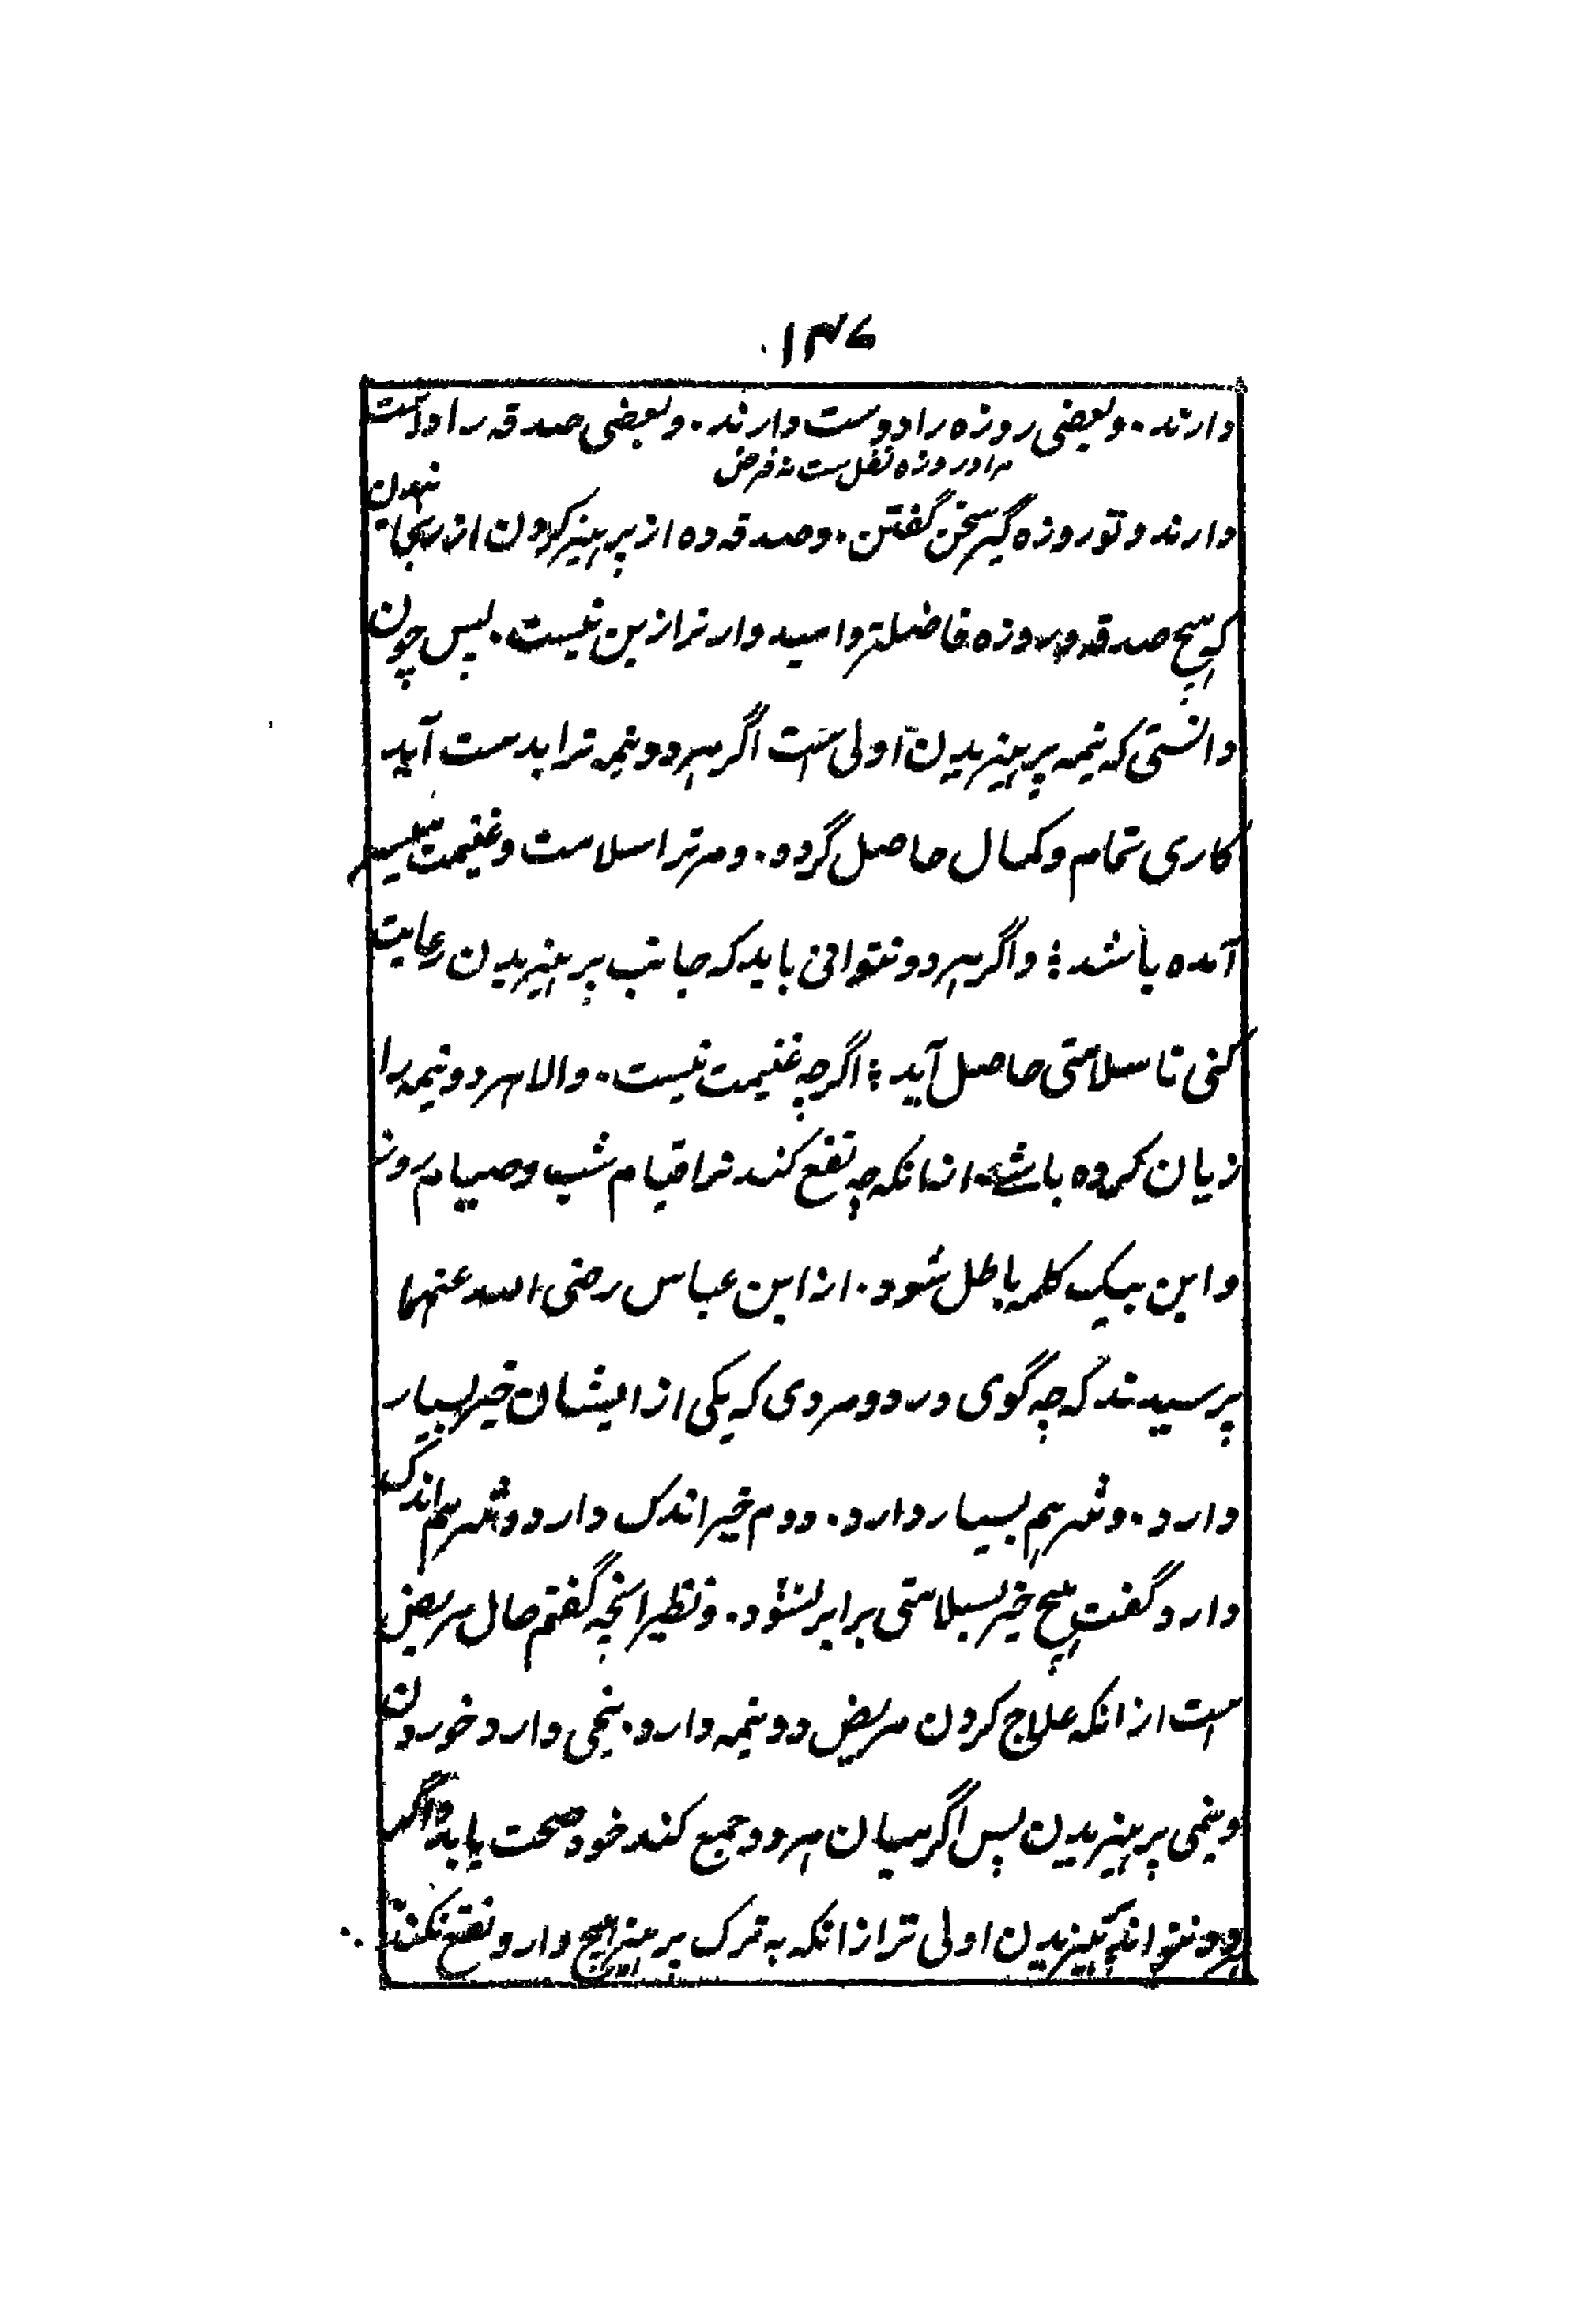 ۱۳۶
دارند. وبعضی روزه را دوست دارند. وبعضی صدقه را دوست
مراد روزه نفل ست نه فرض
دارند و تو روزه گیر سخن گفتن. وصدقه ده از پرهیز کردن از رنجانیدن
که هیچ صدقه و روزه فاضلتر و امیدوارتر ازین نیست. پس چون
دانستی که نیمه پرهیزیدن اولی است اگر هر دو نیمه ترا بدست آید
کاری تمام و کمال حاصل گردد. و مر ترا سلامت و غنیمت میسر
آمده باشد؛ و اگر هر دو نتوانی باید که جانب پرهیزیدن رعایت
کنی تا سلامتی حاصل آید؛ اگرچه غنیمت نیست. والا هر دو نیمه را
زیان کرده باشی. ازانکه چه نفع کند ترا قیام شب و صیام روز
و این بیک کلمه باطل شود. از ابن عباس رضی الله عنهما
پرسیدند که چه گوی در دو مردی که یکی از ایشان خیر بسیار
دارد. و شر هم بسیار دارد. دوم خیر اندک دارد و شر هم اندک
دارد گفت هیچ خیر بسلامتی برابر نشود. و نظیر انچه گفتم حال مریض
است ازانکه علاج کردن مریض دو نیمه دارد. نیمی دارو خوردن
و نیمی پرهیزیدن پس اگر میان هر دو جمع کند خود صحت یابد و اگر
هر دو نتواند پرهیزیدن اولی تر ازانکه به ترک پرهیز هیچ دارو نفع نکند